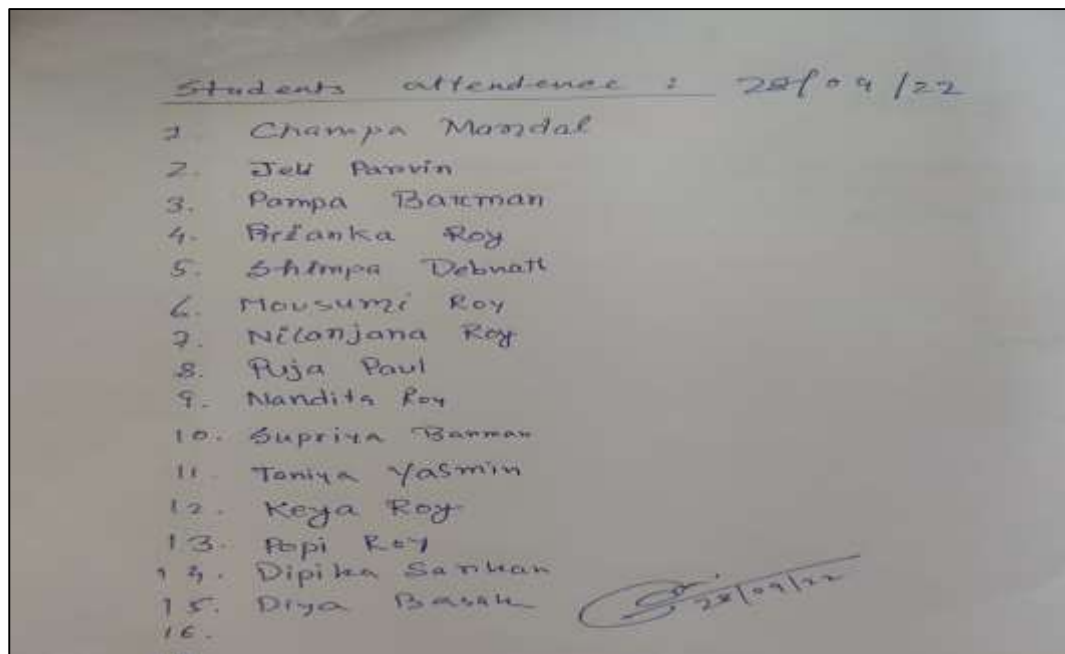 Students attendence : 28/09/22
1. Champa Mandal
2. Jeli Parvin
3. Pampa Barman
4. Prianka Roy
5. Shimpa Debnath
6. Mousumi Roy
7. Nilanjana Roy
8. Puja Paul
9. Nandita Roy
10. Supriya Barman
11. Taniya Yasmin
12. Keya Roy
13. Popi Roy
14. Dipika Sarkar
15. Diya Basak
28/09/22
16.